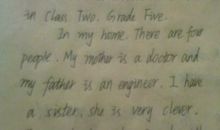 in Class Two. Grade Five.
In my home. There are four
people. My mother is a doctor and
my father is an engineer. I have
a sister. she is very clever.